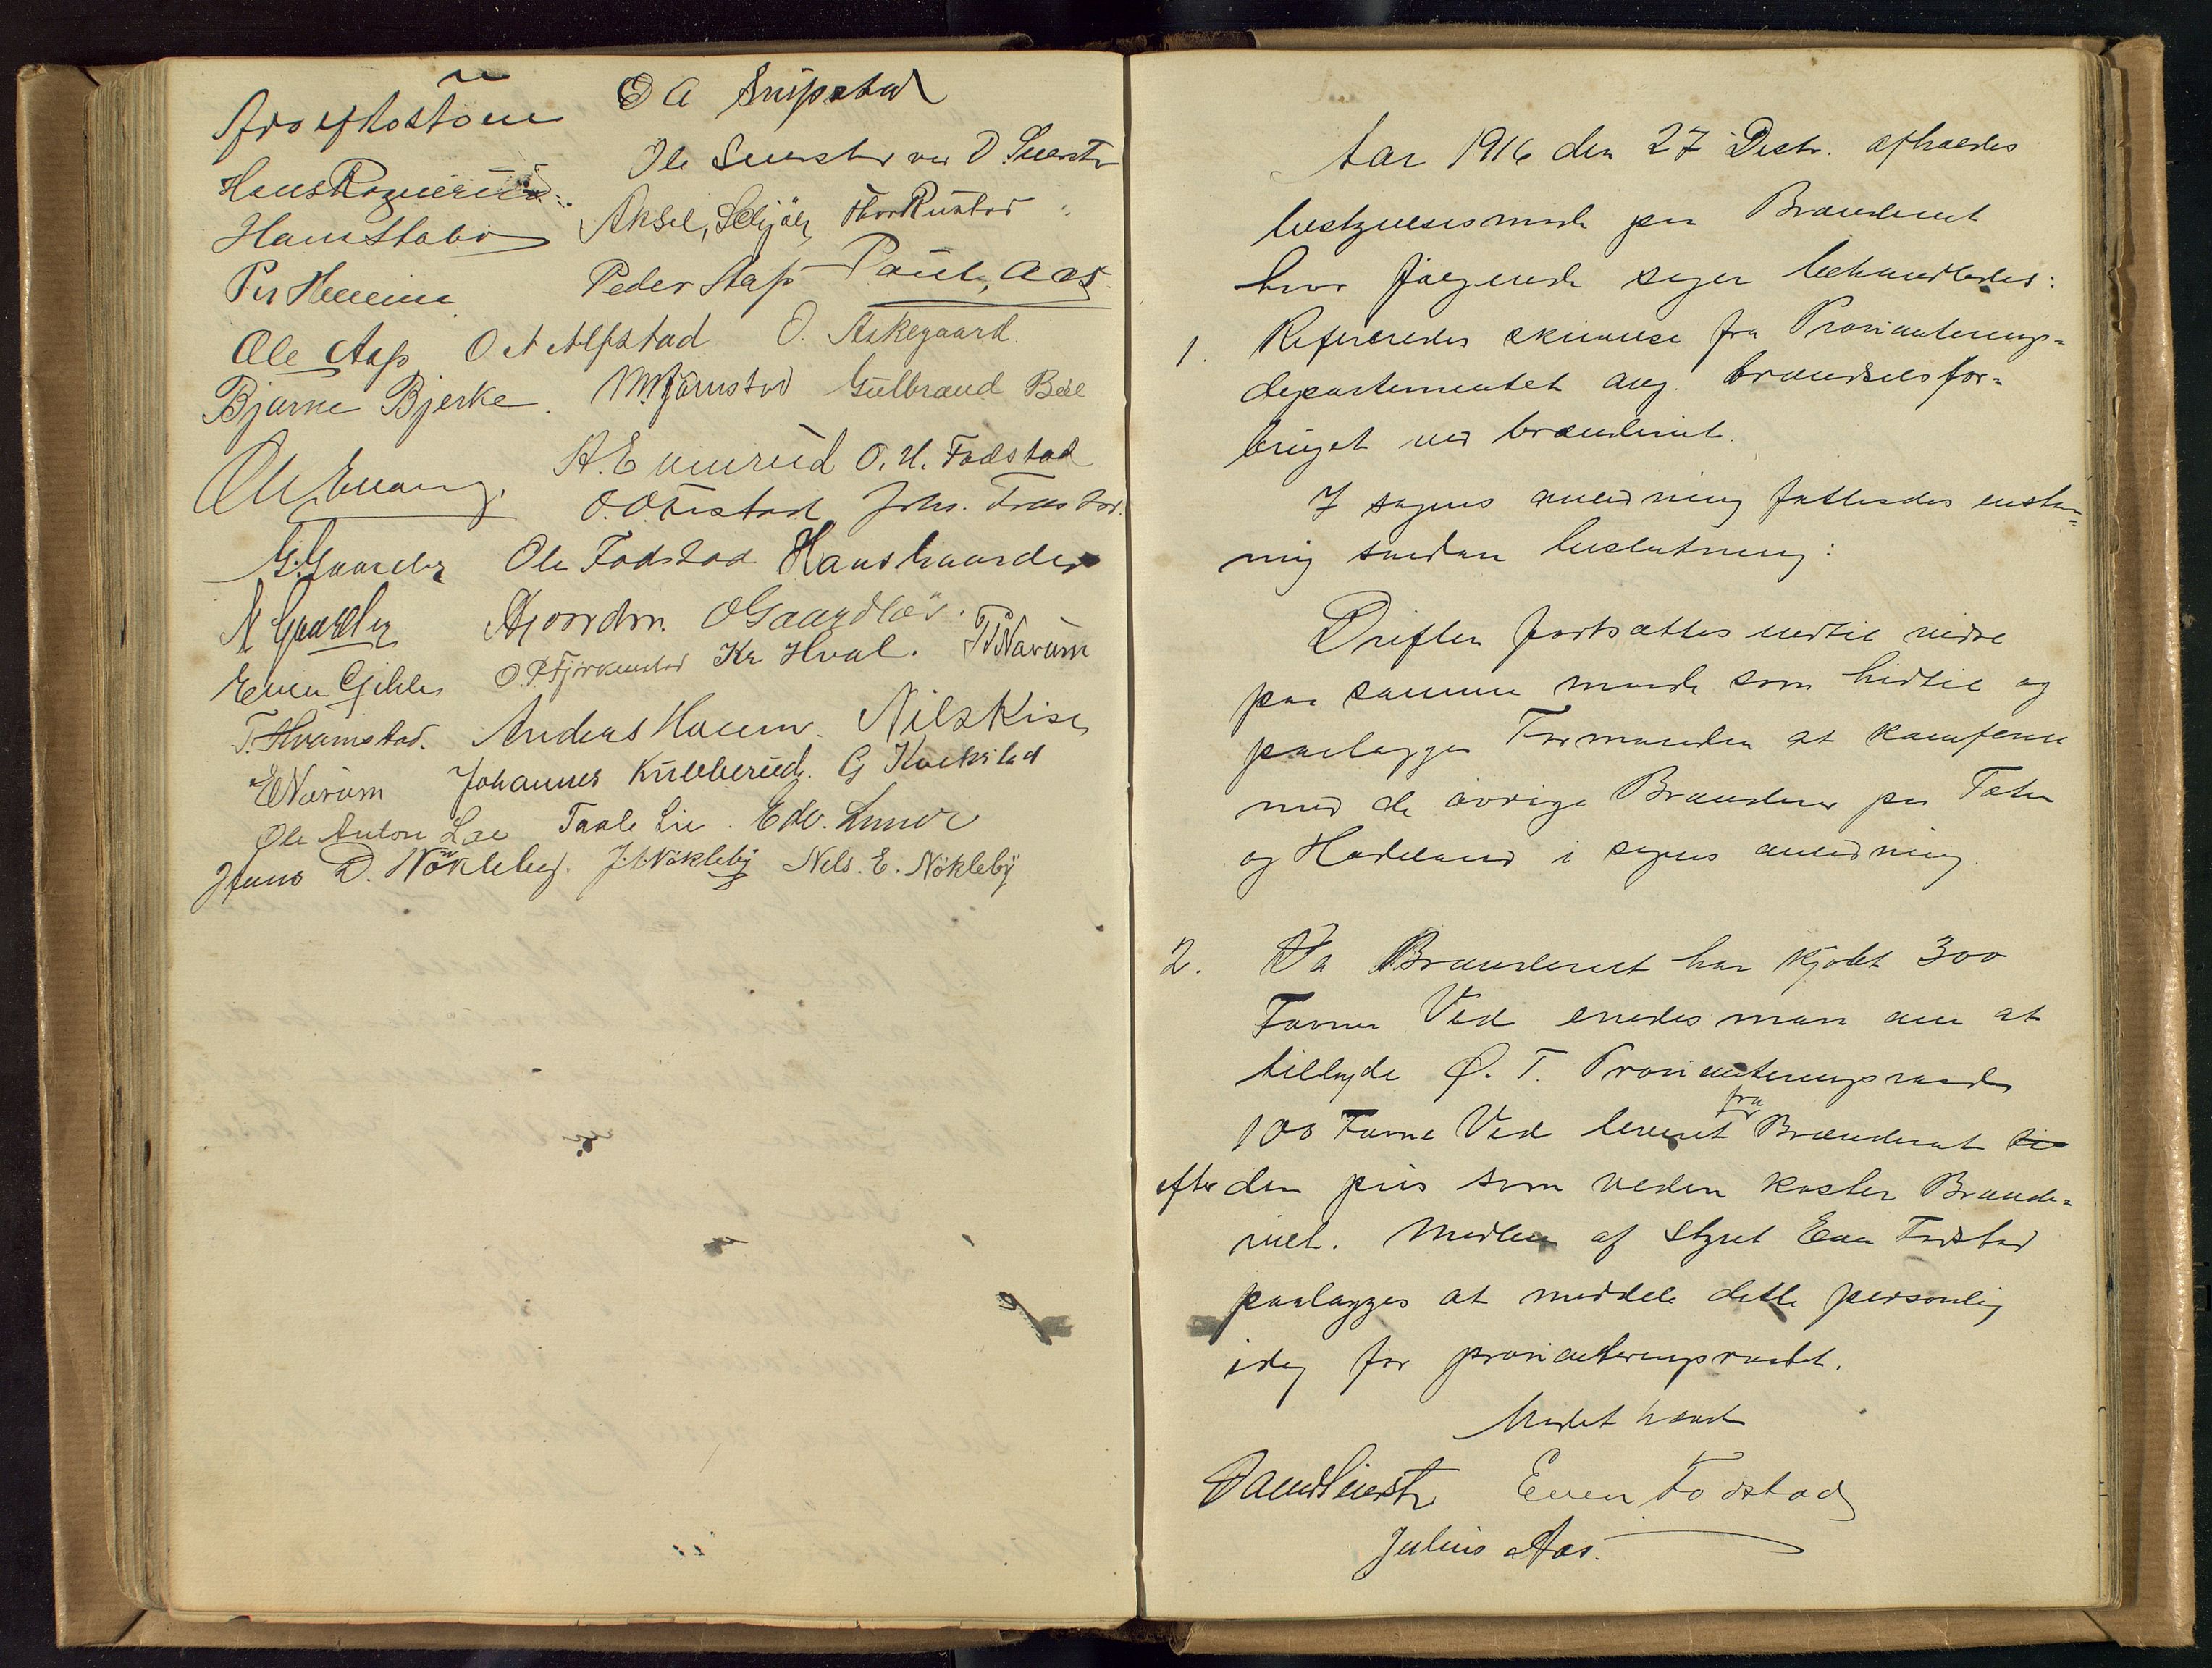 O A Snipstad
Hans Rognerud
Aksel, Schjöll Thor Rustad
Hans Stabo
Per Hemma
Peder Aas Paul, Aas
Ole Aas O A Alfstad O. Askegaard.
Bjarne Bjerke. M. Hjørnstad Gulbrand Bøe
A. Emerud O. H. Fodstad
Ole Evang. O. Ovistad Johs. Fodstad.
G. Gaarder Ole Fodstad Hans Gaarder
N Gaarder O Gaardløs.
Even Gihle O. P. Fjørkenstad Kr Hval. P. Narum
T. Hvamstad. Anders Haem. Nils Kise
E Narum Johannes Kubberud. G Kvekstad
Ole Anton Lie Taale Lie. Edv. Lunde
Hans D. Nökleby. J. A. Nökleby Nels. E. Nökleby
Aar 1916 den 27 Decbr. afholdes
bestyrelsesmøde paa Brænderiet
hvor følgende sager behandledes:
1. Refereredes skrivelse fra Provianterings-
departementet ang. brændselsfor-
bruget ved brænderiet.
I sagens anledning fattedes enstem-
mig saadan beslutning:
Driften fortsættes indtil videre
paa samme maade som hidtil og
paalægges Formanden at konferere
med de øvrige Brænderier paa Toten
og Hadeland i sagens anledning.
2. Da Brænderiet har kjøbt 300
Favner Ved enedes man om at
tilbyde Ø. T. Provianteringsraad
100 Favne Ved leveret fra Brænderiet
efter den pris som veden koster Brænde-
riet. Medlem af styret Even Fodstad
paalægges at meddele dette personlig
idag for provianteringsraadet.
Mødet hævet
Even Fodstad
Julius Aas.